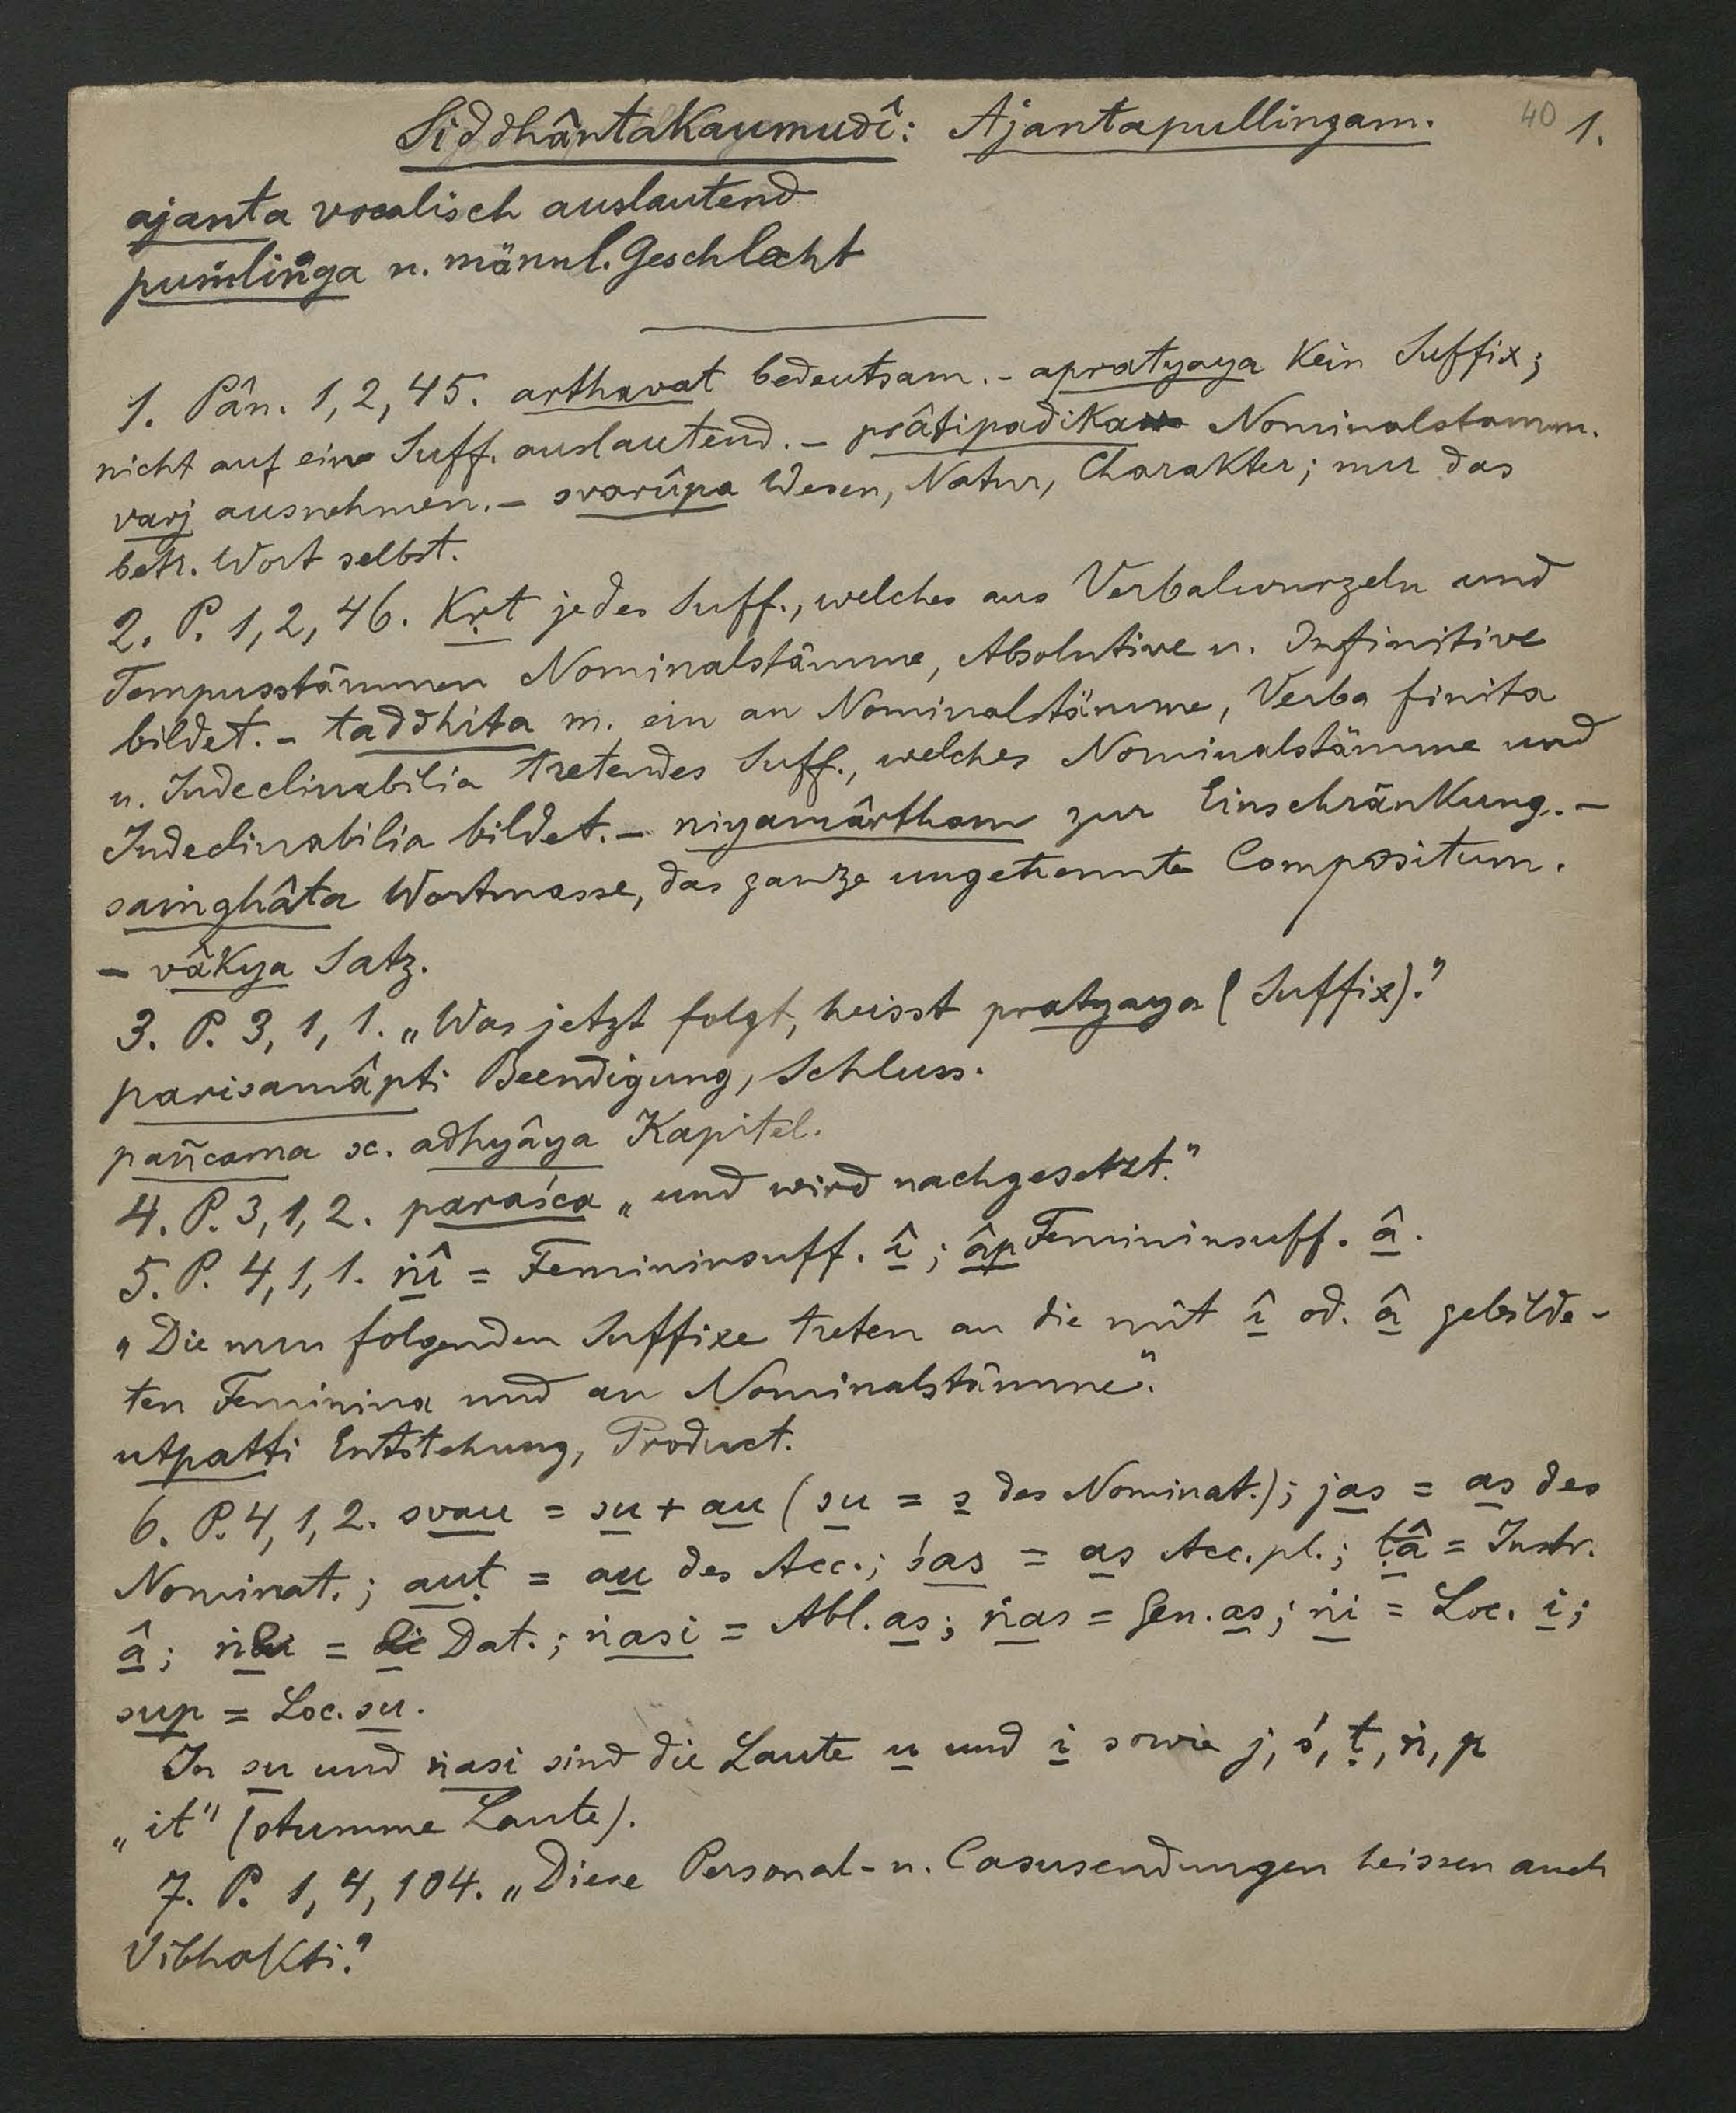 Siddhântakaumudî: Ajantapullingam. 40 1.
ajanta vocalisch auslautend
puṁliṅga n. männl. Geschlecht
1. Pân. 1, 2, 45. arthavat bedeutsam. - apratyaya kein Suffix;
nicht auf ein Suff. auslautend. - prâtipadika Nominalstamm.
varj ausnehmen. - svarûpa Wesen, Natur, Charakter; nur das
betr. Wort selbst.
2. P. 1, 2, 46. Kṛt jedes Suff., welches aus Verbalwurzeln und
Tempusstämmen Nominalstämme, Absolutive u. Infinitive
bildet. - taddhita m. ein an Nominalstämme, Verba finita
u. Indeclinabilia tretendes Suff., welches Nominalstämme und
Indeclinabilia bildet. - niyamârtham zur Einschränkung. -
saṁghâta Wortmasse, das ganze ungetrennte Compositum.
- vâkya Satz.
3. P. 3, 1, 1. „Was jetzt folgt, heisst pratyaya (Suffix)."
parisamâpti Beendigung, Schluss.
pañcama sc. adhyâya Kapitel.
4. P. 3, 1, 2. paraśca „und wird nachgesetzt."
5. P. 4, 1, 1. ṅî = Femininsuff. î; âp Femininsuff. â.
„Die nun folgenden Suffixe treten an die mit î od. â gebilde-
ten Feminina und an Nominalstämme."
utpatti Entstehung, Product.
6. P. 4, 1, 2. svau = su + au (su = s des Nominat.); jas = as des
Nominat.; auṭ = au des Acc.; śas = as Acc. pl.; ṭâ = Instr.
â; ṅe = e Dat.; ṅasi = Abl. as; ṅas = Gen. as; ṅi = Loc. i;
sup = Loc. su.
In su und ṅasi sind die Laute u und i sowie j, ś, ṭ, ṅ, p
„it" (stumme Laute).
7. P. 1, 4, 104. „Diese Personal- u. Casusendungen heissen auch
Vibhakti."